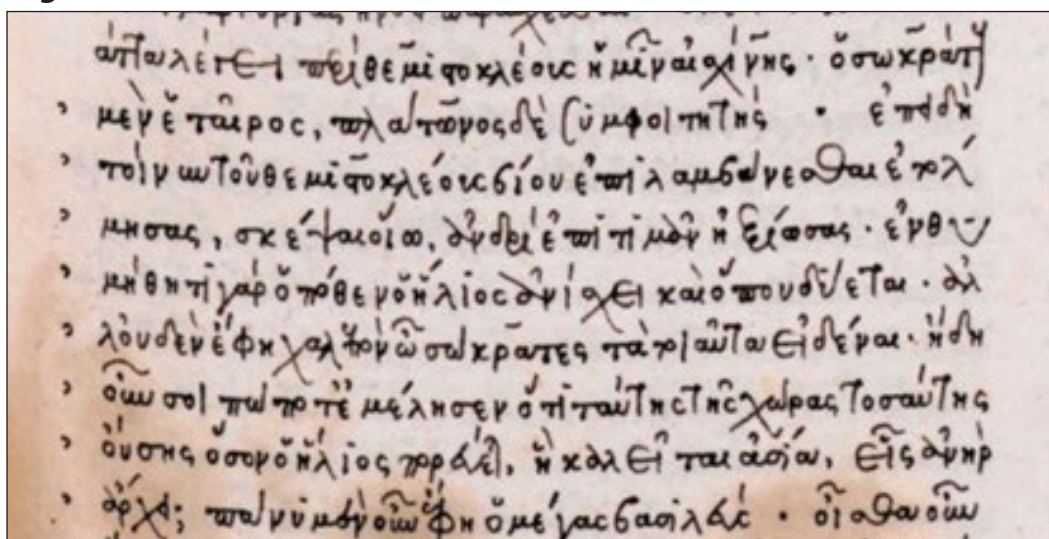 ἅττα λέγει περὶ θεμιστοκλέους ἡμῖν αἰσχίνης · ὁ σωκράτους
μὲν ἑταῖρος, πλάτωνος δὲ συμφοιτητής · ἐπειδὴ
τοίνυν τοῦ θεμιστοκλέους βίου ἐπιλαμβάνεσθαι ἐτόλ
μησας, σκέψαι οἵω, ἀνδρὶ ἐπιτιμᾶν ἠξίωσας · ἐνθυ
μήθητι γὰρ ὁπόθεν ὁ ἥλιος ἀνίσχει καὶ ὅπου δύεται · ἀλ
λ' οὐδὲν ἔφη χαλεπὸν ὦ σώκρατες τὰ τοιαῦτα εἰδέναι · ἤδη
οὖν σοι πώποτε μέλησεν ὅτι ταύτης τῆς χώρας τοσαύτης
οὔσης ὅσον ὁ ἥλιος πορεύεται, ἣ καλεῖται ἀσία, εἷς ἀνὴρ
ἄρχει; πάνυ μὲν οὖν ἔφη ὁ μέγας βασιλεύς · οἶσθα οὖν